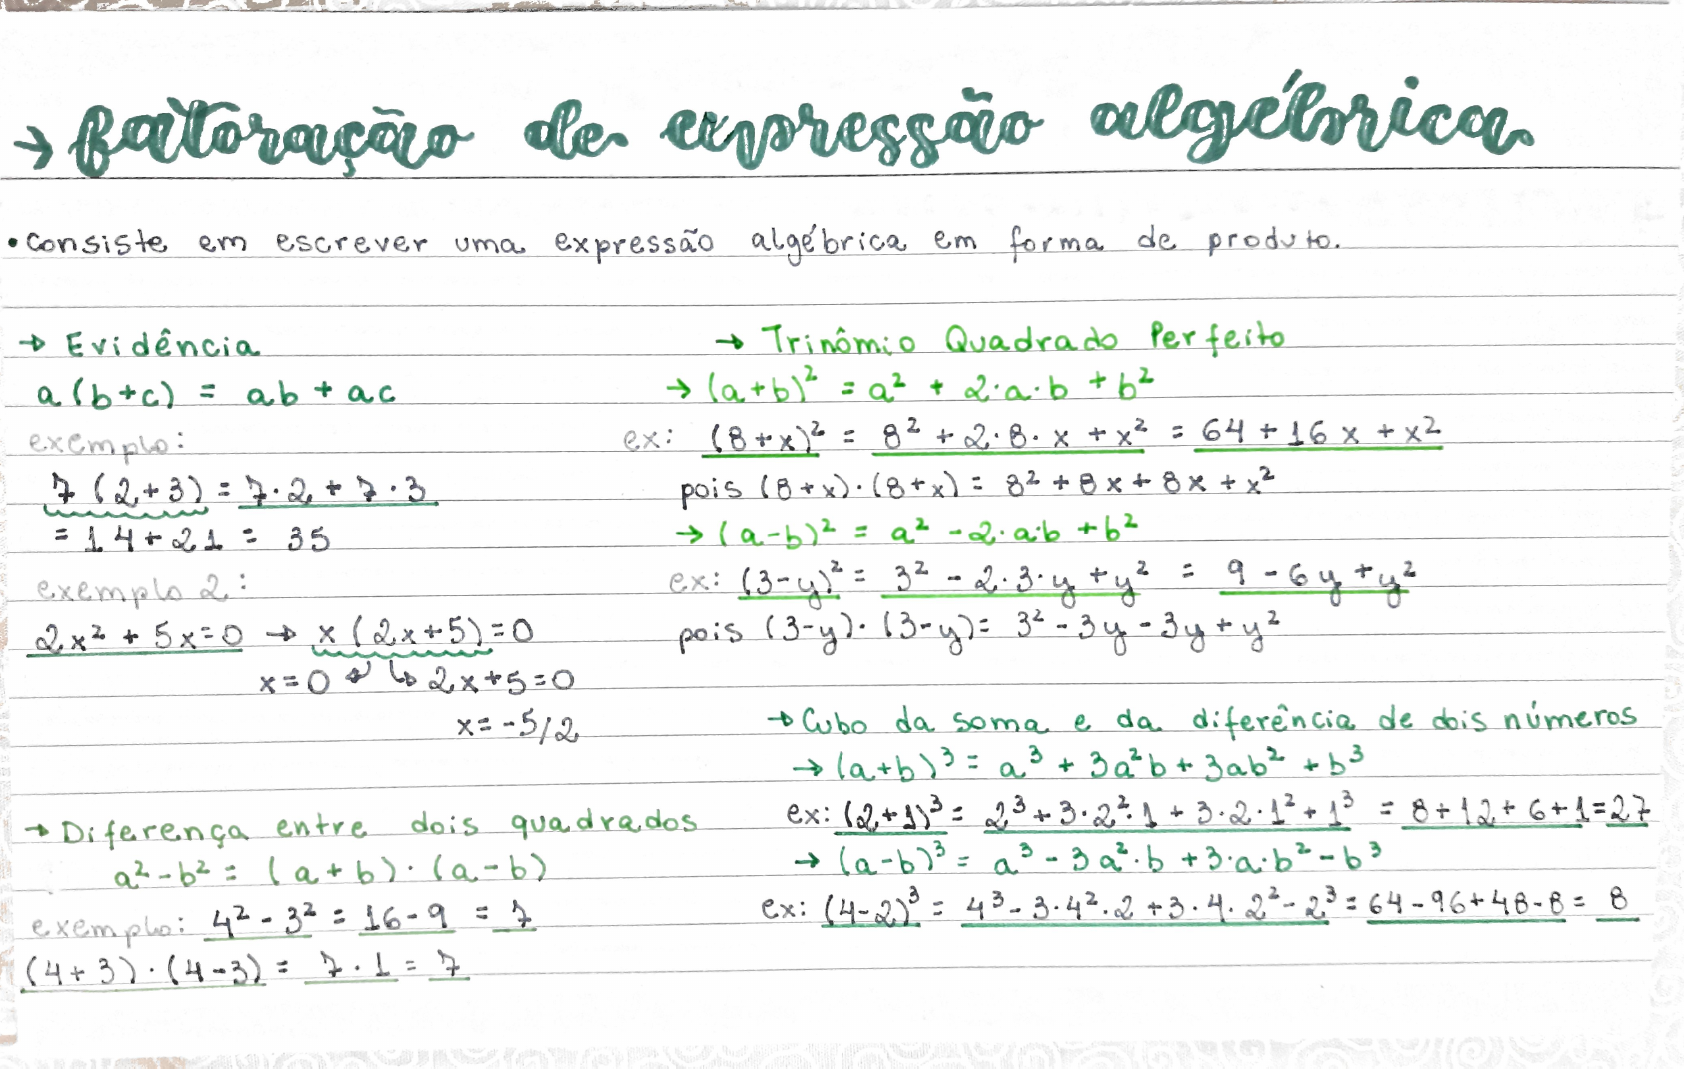 → fatoração de expressão algébrica
• Consiste em escrever uma expressão algébrica em forma de produto.
→ Evidência
a(b+c) = ab + ac
exemplo:
7(2+3) = 7·2 + 7·3
= 14 + 21 = 35
exemplo 2:
2x² + 5x = 0 → x(2x+5) = 0
x=0 ↲ ↳ 2x+5=0
x = -5/2
→ Diferença entre dois quadrados
a² - b² = (a+b)·(a-b)
exemplo: 4² - 3² = 16 - 9 = 7
(4+3)·(4-3) = 7·1 = 7
→ Trinômio Quadrado Perfeito
→ (a+b)² = a² + 2·a·b + b²
ex: (8+x)² = 8² + 2·8·x + x² = 64 + 16x + x²
pois (8+x)·(8+x) = 8² + 8x + 8x + x²
→ (a-b)² = a² - 2·a·b + b²
ex: (3-y)² = 3² - 2·3·y + y² = 9 - 6y + y²
pois (3-y)·(3-y) = 3² - 3y - 3y + y²
→ Cubo da soma e da diferência de dois números
→ (a+b)³ = a³ + 3a²b + 3ab² + b³
ex: (2+1)³ = 2³ + 3·2²·1 + 3·2·1² + 1³ = 8+12+6+1=27
→ (a-b)³ = a³ - 3a²·b + 3·a·b² - b³
ex: (4-2)³ = 4³ - 3·4²·2 + 3·4·2² - 2³ = 64 - 96 + 48 - 8 = 8